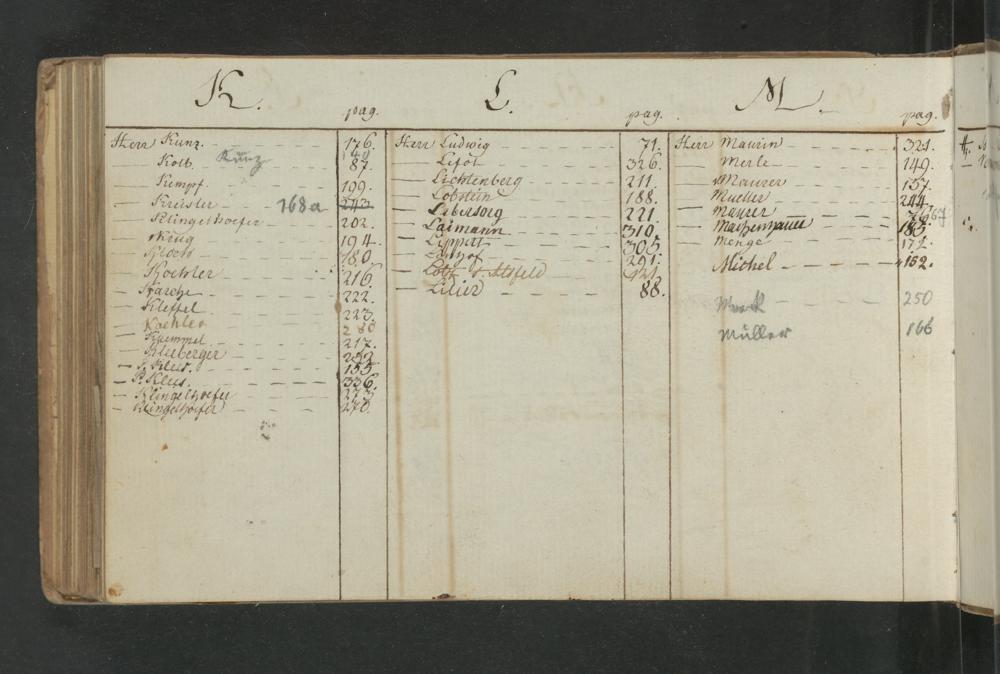 K.
pag.
Herr Kunz. 176.
Kunz 140
— Kolb. 87.
— Kempf. 199.
— Kreisler 168a 243
— Klingelhoefer 202.
— Krug 194.
— Kloch 180.
— Koehler 216.
— Starche 222.
— Kleffel 223.
— Koehler 280
— Kuemmel 217.
— Kleeberger 252
— J. Klees. 155.
— P. Klees. 336.
— Klingelhoefer 273.
— Klingelhoefer 270.
L.
pag.
Herr Ludwig 71.
— Lifot 326.
— Lichtenberg 211.
— Lobstein 188.
— Lebersorg 221.
— Laimann 310.
— Lippert 305.
— 291.
— Lotz v Alsfeld 321.
— Lilier 88.
M.
pag.
Herr Maurin 321.
— Merle 149.
— Maurer 157.
— Mueller 244.
— Maurer 76 67
— Machenhauer 185.
— Menge 172.
— Michel 152.
Merk 250
Müller 166